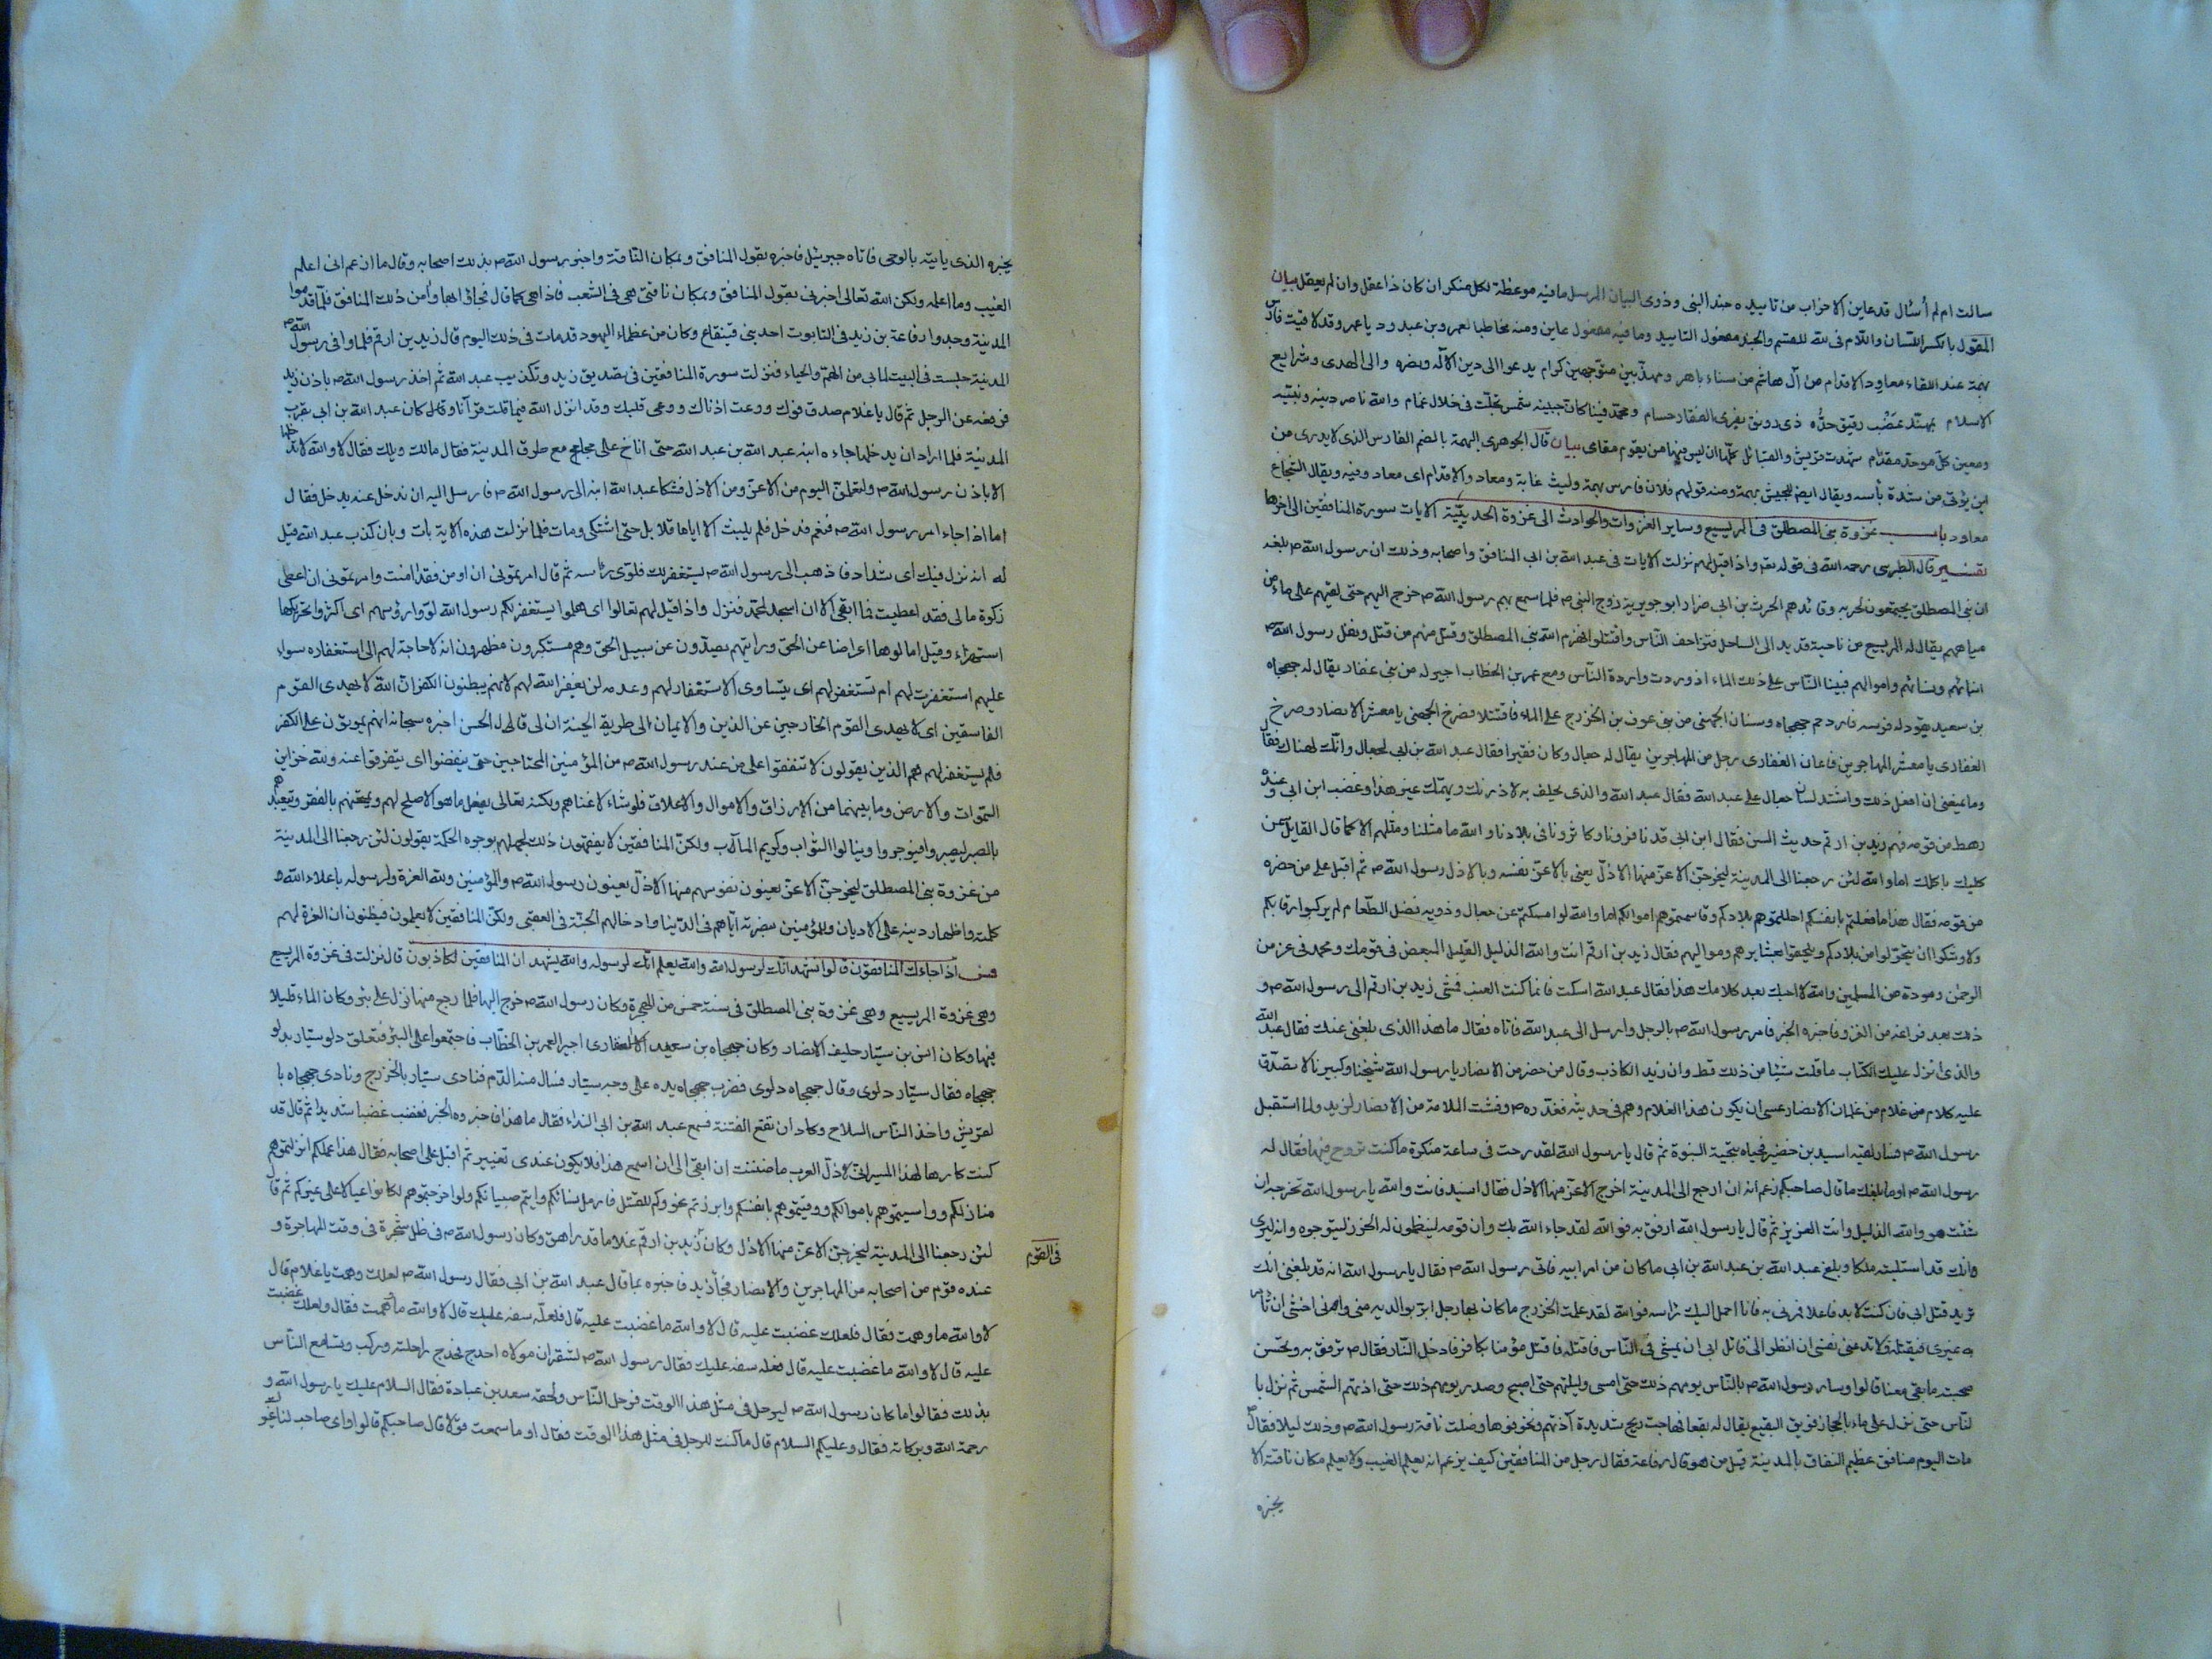 سالت ام لم أسئال قد عاين الاحزاب من تاييده جند النبى وذوى البيان المرسل ما فيه موعظة لكل منكر ان كان ذا عقل وان لم يعقل بيان
المقول بالكسر اللسان واللام فى لله للقسم والجند مفعول التاييد وما فيه مفعول عاين ومنه مخاطبا لعمرو بن عبد ود يا عمرو قد لاقيت فارس
بهمة عند اللقاء معاود الاقدام من آل هاشم من سناء باهر ومهذبين متوجهين كرام يدعوا الى دين الاله ونصره والى الهدى وشرايع
الاسلام بمهند عضب رقيق حده ذى رونق يفرى الفقار حسام ومحمد فينا كان جبينه شمس تجلت فى خلال غمام والله ناصر دينه ونبيه
ومعين كل موحد مقدام شهدت قريش والقبائل كلها ان ليس فيها من يقوم مقامى بيان قال الجوهرى البهمة بالضم الفارس الذى لا يدرى من
اين يؤتى من شدة بأسه ويقال ايض للجيش بهمة ومنه قولهم فلان فارس بهمة وليث غابة ومعاود الاقدام اى معاود فيه ويقال الشجاع
معاود باب غزوة بنى المصطلق فى المريسيع وساير الغزوات والحوادث الى غزوة الحديبية الايات سورة المنافقين الى اخرها
تفسير قال الطبرسى رحمه الله فى قوله تعم واذا قيل لهم نزلت الايات فى عبد الله بن ابى المنافق واصحابه وذلك ان رسول الله ص بلغه
ان بنى المصطلق يجتمعون لحربه وقائدهم الحرث بن ابى ضرار ابو جويرية زوج النبى ص فلما سمع بهم رسول الله ص خرج اليهم حتى لقيهم على ماء من
مياههم يقال له المريسيع من ناحية قديد الى الساحل فتزاحف الناس واقتتلوا فهزم الله بنى المصطلق وقتل منهم من قتل ونفل رسول الله ص
ابنائهم ونسائهم واموالهم فبينا الناس على ذلك الماء اذ وردت واردة الناس ومع عمر بن الخطاب اجير له من بنى غفار يقال له جهجاه
بن سعيد يقود له فرسه فازدحم جهجاه وسنان الجهنى من بنى عوف بن الخزرج على الماء فاقتتلا فصرخ الجهنى يا معشر الانصار وصرخ
الغفارى يا معشر المهاجرين فاعان الغفارى رجل من المهاجرين يقال له جعال وكان فقيرا فقال عبد الله بن ابى لجعال وانك لهناك فقال
وما يمنعنى ان افعل ذلك واشتد لسان جعال على عبد الله فقال عبد الله والذى يحلف به لاذرنك ويهمك غير هذا وغضب ابن ابى وعنده
رهط من قومه فيهم زيد بن ارقم حديث السن فقال ابن ابى قد نافرونا وكاثرونا فى بلادنا والله ما مثلنا ومثلهم الا كما قال القايل سمن
كلبك ياكلك اما والله لئن رجعنا الى المدينة ليخرجن الاعز منها الاذل يعنى بالاعز نفسه وبالاذل رسول الله ص ثم اقبل على من حضره
من قومه فقال هذا ما فعلتم بانفسكم احللتموهم بلادكم وقاسمتموهم اموالكم اما والله لو امسكتم عن جعال وذويه فضل الطعام لم يركبوا رقابكم
ولاوشكوا ان يتحولوا من بلادكم ويلحقوا بعشايرهم ومواليهم فقال زيد بن ارقم انت والله الذليل القليل المبغض فى قومك ومحمد فى عز من
الرحمن ومودة من المسلمين والله لا احبك بعد كلامك هذا فقال عبد الله اسكت فانما كنت العب فمشى زيد بن ارقم الى رسول الله ص و
ذلك بعد فراغه من الغزو فاخبره الخبر فامر رسول الله ص بالرحل وارسل الى عبد الله فاتاه فقال ما هذا الذى بلغنى عنك فقال عبد الله
والذى انزل عليك الكتاب ما قلت شيئا من ذلك قط وان زيد الكاذب وقال من حضر من الانصار يا رسول الله شيخنا وكبيرنا لا تصدق
عليه كلام من غلام من غلمان الانصار عسى ان يكون هذا الغلام وهم فى حديثه فعذره ص وفشت الملامة من الانصار لزيد ولما استقبل
رسول الله ص فسار لقيه اسيد بن حضير فحياه بتحية النبوة ثم قال يا رسول الله لقد رحت فى ساعة منكرة ما كنت تروح فيها فقال له
رسول الله ص اوما بلغك ما قال صاحبكم زعم انه ان ارجع الى المدينة اخرج الاعز منها الاذل فقال اسيد فانت والله يا رسول الله تخرجه ان
شئت هو والله الذليل وانت العزيز ثم قال يا رسول الله ارفق به فوالله لقد جاء الله بك وان قومه لينظمون له الخرز ليتوجوه وانه ليرى
وانك قد استلبته ملكا وبلغ عبد الله بن عبد الله بن ابى ما كان من امر ابيه فاتى رسول الله ص فقال يا رسول الله انه قد بلغنى انك
تريد قتل ابى فان كنت لا بد فاعلا فمرنى به فانا احمل اليك راسه فوالله لقد علمت الخزرج ما كان بها رجل ابر بوالديه منى وانى اخشى ان تأمر
به غيرى فيقتله فلا تدعنى نفسى ان انظر الى قاتل ابى ان يمشى فى الناس فاقتله فاقتل مؤمنا بكافر فادخل النار فقال ص ترفق به وتحسن
صحبته ما بقى معنا قالوا وسار رسول الله ص بالناس يومهم ذلك حتى امسى وليلتهم حتى اصبح وصدر يومهم ذلك حتى اذتهم الشمس ثم نزل با
لناس حتى نزل على ماء بالحجاز فويق البقيع يقال له بقعا فهاجت ريح شديدة آذتهم وتخوفوها وضلت ناقة رسول الله ص وذلك ليلا فقال ص
مات اليوم منافق عظيم النفاق بالمدينة قيل من هو قال رفاعة فقال رجل من المنافقين كيف يزعم انه يعلم الغيب ولا يعلم مكان ناقته الا
يخبره
يخبره الذى ياتيه بالوحى فاتاه جبرئيل فاخبره بقول المنافق وبمكان الناقة واخبر رسول الله ص بذلك اصحابه وقال ما ازعم انى اعلم
الغيب وما اعلمه ولكن الله تعالى اخبرنى بقول المنافق وبمكان ناقتى هى فى الشعب فاذا هى كما قال فجاؤا بها وامن ذلك المنافق فلما قدموا
المدينة وجدوا رفاعة بن زيد فى التابوت احد بنى قينقاع وكان من عظماء اليهود قد مات فى ذلك اليوم قال زيد بن ارقم فلما وافى رسول الله ص
المدينة جلست فى البيت لما بى من الهم والحياء فنزلت سورة المنافقين فى تصديق زيد وتكذيب عبد الله ثم اخذ رسول الله ص باذن زيد
فرفعه عن الرحل ثم قال يا غلام صدق فوك ووعت اذناك ووعى قلبك وقد انزل الله فيما قلت قرآنا وكان عبد الله بن ابى بقرب
المدينة فلما اراد ان يدخلها جاءه ابنه عبد الله بن عبد الله حتى اناخ على مجامع طرق المدينة فقال مالك ويلك فقال لا والله لا تدخلها
الا باذن رسول الله ص ولتعلمن اليوم من الاعز ومن الاذل فشكا عبد الله ابنه الى رسول الله ص فارسل اليه ان تدخل عنه يدخل فقال
اما اذا جاء امر رسول الله ص فنعم فدخل فلم يلبث الا اياما قلايل حتى اشتكى ومات فلما نزلت هذه الاية بات وبان كذب عبد الله قيل
له انه نزل فيك اى شداد فاذهب الى رسول الله ص يستغفر لك فلوى رأسه ثم قال امرتمونى ان اومن فقد امنت وامرتمونى ان اعطى
زكوة مالى فقد اعطيت فما بقى الا ان اسجد لمحمد فنزل واذا قيل لهم تعالوا اى هلموا يستغفر لكم رسول الله لووا رؤسهم اى اكثروا تحريكها
استهزاء وقيل امالوها اعراضا عن الحق ورايتهم يصدون عن سبيل الحق وهم مستكبرون مظهرون انه لا حاجة لهم الى استغفاره سواء
عليهم استغفرت لهم ام تستغفر لهم اى يتساوى الاستغفار لهم وعدمه لن يغفر الله لهم لانهم يبطنون الكفر ان الله لا يهدى القوم
الفاسقين اى لا يهدى القوم الخارجين عن الدين والايمان الى طريقه الجنة قال الحسن اخبره سبحانه انهم يموتون على الكفر
فلم يستغفر لهم هم الذين يقولون لا تنفقوا على من عند رسول الله ص من المؤمنين المحتاجين حتى ينفضوا اى يتفرقوا عنه ولله خزاين
السموات والارض وما بينهما من الارزاق والاموال والاعلاق فلو شاء لاغناهم ولكنه تعالى يفعل ما هو الاصلح لهم ويمتحنهم بالفقر ويتعبدهم
بالصبر ليصبروا فيوجروا وينالوا الثواب وكريم المآب ولكن المنافقين لا يفقهون ذلك لجهلهم بوجوه الحكمة يقولون لئن رجعنا الى المدينة
من غزوة بنى المصطلق ليخرجن الاعز يعنون نفوسهم منها الاذل يعنون رسول الله ص والمؤمنين ولله العزة ولرسوله باعلاء الله و
كلمته واظهار دينه على الاديان وللمؤمنين بنصرته اياهم فى الدنيا وادخالهم الجنة فى العقبى ولكن المنافقين لا يعلمون فيظنون ان العزة لهم
فس اذا جاءك المنافقون قالوا نشهد انك لرسول الله والله يعلم انك لرسوله والله يشهد ان المنافقين لكاذبون قال نزلت فى غزوة المريسيع
وهى غزوة المريسيع وهى غزوة بنى المصطلق فى سنة خمس من الهجرة وكان رسول الله ص خرج اليها فلما رجع منها نزل على بئر وكان الماء قليلا
فيها وكان انس بن سيار حليف الانصار وكان جهجاه بن سعيد الغفارى اجيرا لعمر بن الخطاب فاجتمعوا على البئر فتعلق دلو سيار بدلو
جهجاه فقال سيار دلوى وقال جهجاه دلوى فضرب جهجاه يده على وجه سيار فسال منه الدم فنادى سيار بالخزرج ونادى جهجاه با
لقريش واخذ الناس السلاح وكاد ان تقع الفتنة فسمع عبد الله بن ابى النداء فقال ما هذا فاخبروه الخبر فغضب غضبا شديدا ثم قال قد
كنت كارها لهذا المسير انى لاذل العرب ما ظننت ان ابقى الى ان اسمع هذا فلا يكون عندى تغيير ثم اقبل على اصحابه فقال هذا عملكم انزلتموهم
منازلكم وواسيتموهم باموالكم ووقيتموهم بانفسكم وابرزتم نحوركم للقتل فارمل نسائكم وايتم صبيانكم ولو اخرجتموهم لكانوا عيالا على غيركم ثم قال
لئن رجعنا الى المدينة ليخرجن الاعز منها الاذل وكان زيد بن ارقم غلاما قد راهق وكان رسول الله ص فى ظل شجرة فى وقت الهاجرة و
فى القوم
عنده قوم من اصحابه من المهاجرين والانصار فجأ زيد فاخبره بما قال عبد الله بن ابى فقال رسول الله ص لعلك وهمت يا غلام قال
لا والله ما وهمت فقال فلعلك غضبت عليه قال لا والله ما غضبت عليه قال فلعله سفه عليك قال لا والله ما وهمت فقال ولعلك غضبت
عليه قال لا والله ما غضبت عليه قال فعله سفه عليك فقال رسول الله ص لشقران مولاه احدج فحدج راحلته وركب وتسامع الناس
بذلك فقالوا ما كان رسول الله ص ليرحل فى مثل هذا الوقت فرحل الناس ولحقه سعد بن عبادة فقال السلام عليك يا رسول الله و
رحمة الله وبركاته فقال وعليكم السلام قال ما كنت لترحل فى مثل هذا الوقت فقال اوما سمعت قولا قال صاحبكم قالوا واى صاحب لنا غيرك